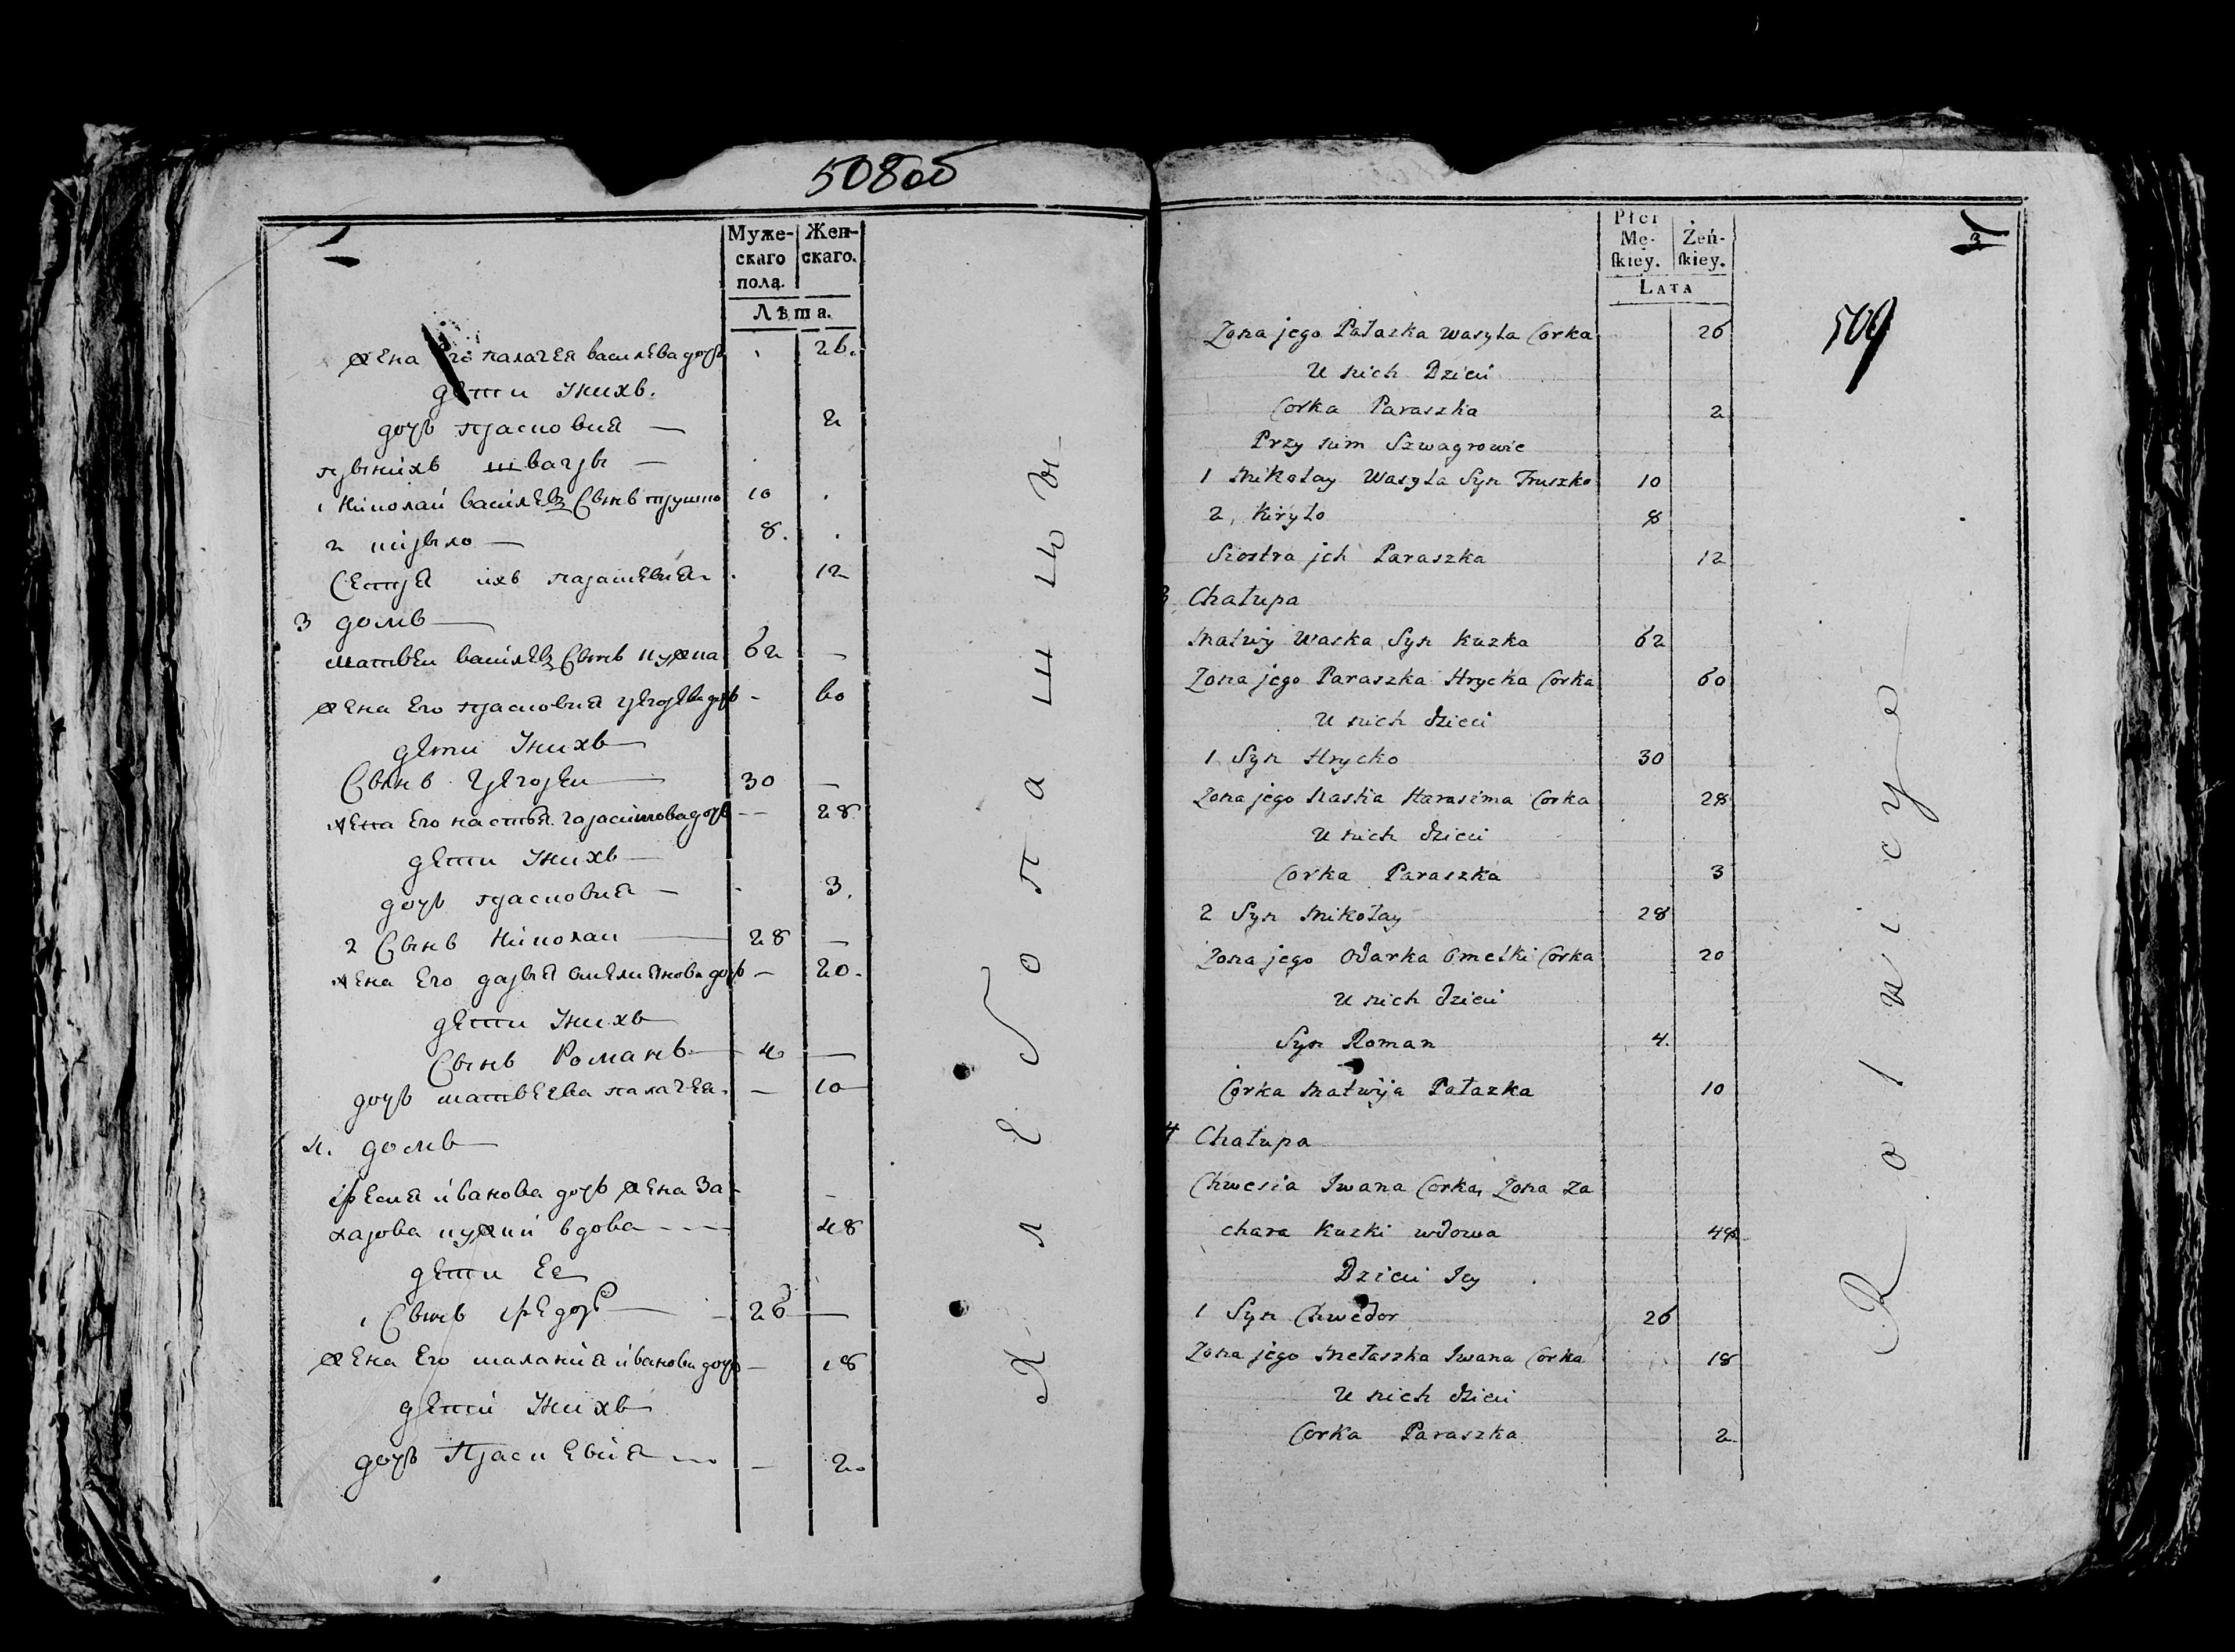 508об
Муже- Жен-
скаго скаго.
пола.
Лѣта.
жена его палагея василева дочь 26.
дети У нихъ.
дочь прасковия — 2
при нихъ швагры —
1 Николай василевъ Сынъ трушко 10
2 кирыло — 8.
Сестра ихъ парасковия 12
3 домъ
матвей василевъ Сынъ кужка 62 —
жена Его прасковия григорева дочь - 60
дети У нихъ
Сынъ григорей 30 —
жена Его настья гарасимова дочь — 28
дети У нихъ
дочь прасковия — 3.
2 Сынъ Николай 28 —
жена Его дарья омелянова дочь — 20.
дети У нихъ
Сынъ Романъ 4 —
дочь матвеева палагея. — 10
4. домъ
фесия иванова дочь жена За
харова кужки вдова 48
дети Ее
1 Сынъ федоръ 26 —
жена Его малания иванова дочь — 18
дети У нихъ
дочь Прасковия — 2.
Хлебопашцы
Płci
Mę- Żeń-
skiey. skiey.
LATA
3
509
Zona jego Pałazka Wasyla Corka 26
U nich Dzieci
Corka Paraszka 2
Przy nim Szwagrowie
1 Mikołay Wasyla Syn Truszko 10
2, Kiryło 8
Siostra jch Paraszka 12
3 Chałupa
Matwiy Waska Syn Kuzka 62
Zona jego Paraszka Hrycka Corka 60
U nich dzieci
1 Syn Hrycko 30
Zona jego Nastia Harasima Corka 28
U nich dzieci
Corka Paraszka 3
2 Syn Mikołay 28
Zona jego Odarka Omelki Corka 20
U nich dzieci
Syn Roman 4.
Corka Matwija Pałazka 10
4 Chałupa
Chwesia Iwana Corka, Zona Za
chara Kuzki wdowa 48
Dzieci Jey
1 Syn Chwedor 26
Zona jego Mełaszka Iwana Corka 18
U nich dzieci
Corka Paraszka 2
Rolnicy